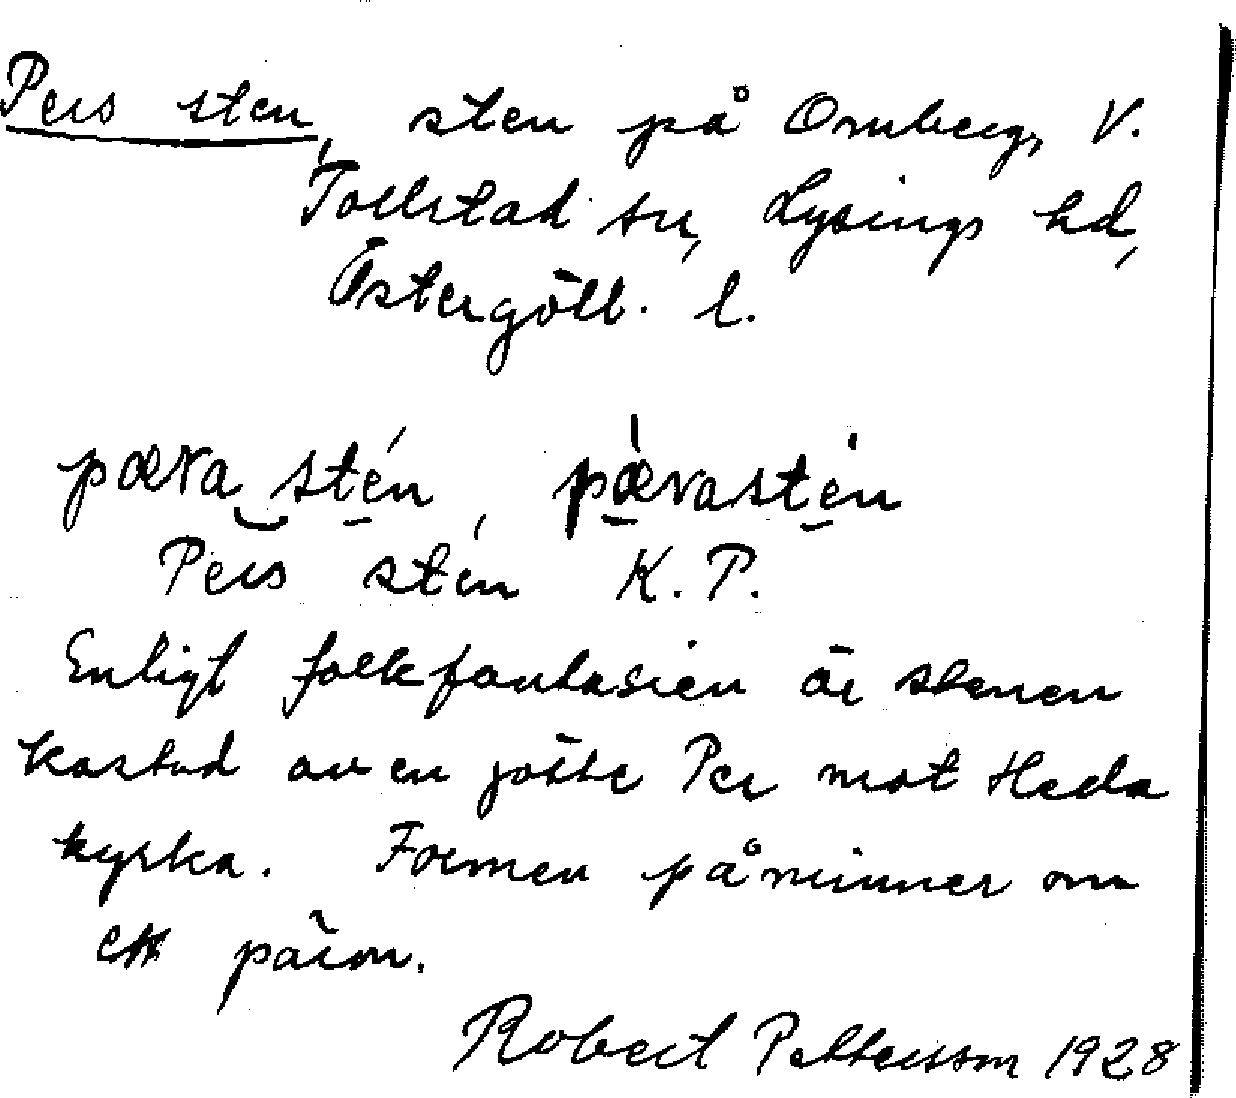 Pers sten, sten på Omberg, V.
Tollstad sn, Lysings hd,
Östergötl. l.
pæra stén, pǽrastén
Pers sten K. P.
Enligt folkfantasien är stenen
kastad av en jätte Per mot Heda
kyrka. Formen påminner om
ett päron.
Robert Pettersson 1928